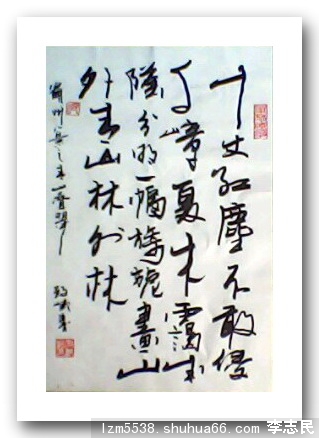 十丈红塵不敢侵
千章夏木靄成
陰分明一幅旖旎畫山
外青山林外林
lzm5538.shuhua66.com 李志民